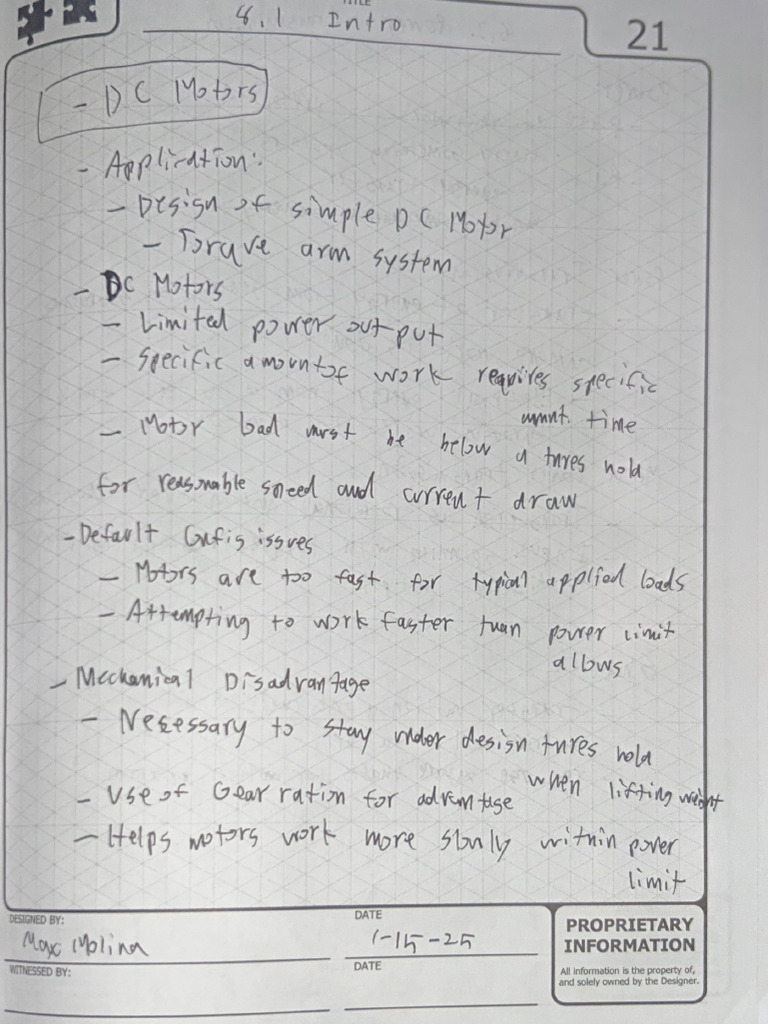 TITLE
8.1 Intro
21
- DC Motors
- Application:
- Design of simple DC Motor
- Torque arm system
- DC Motors
- Limited power output
- Specific amount of work requires specific
amnt. time
- Motor load must be below a threshold
for reasonable speed and current draw
- Default Config issues
- Motors are too fast for typical applied loads
- Attempting to work faster than power limit
allows
- Mechanical Disadvantage
- Necessary to stay under design threshold
when lifting weight
- Use of Gear ration for advantage
- Helps motors work more slowly within power
limit
DESIGNED BY:
Max Molina
DATE
1-15-25
WITNESSED BY:
DATE
PROPRIETARY
INFORMATION
All information is the property of,
and solely owned by the Designer.